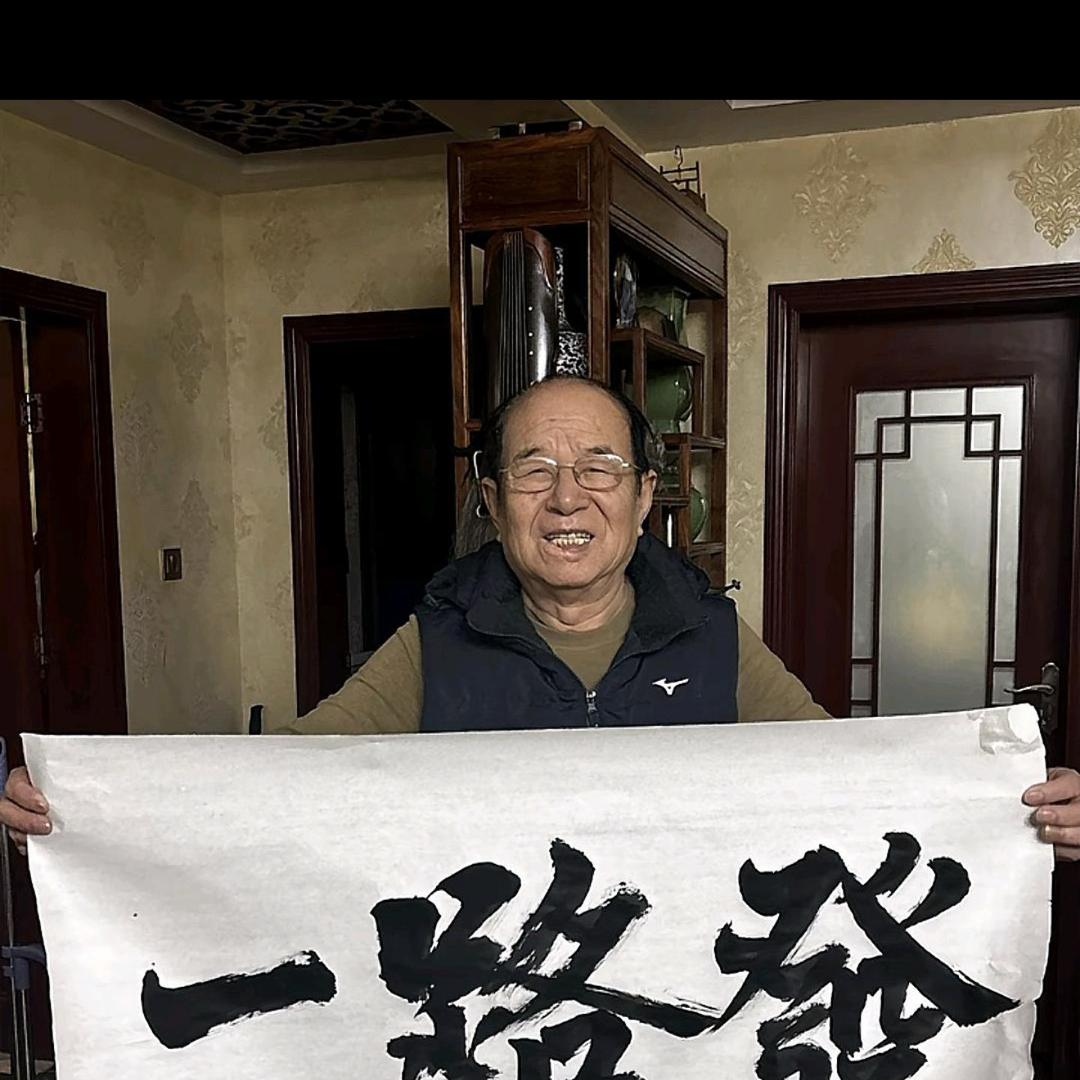 一路發